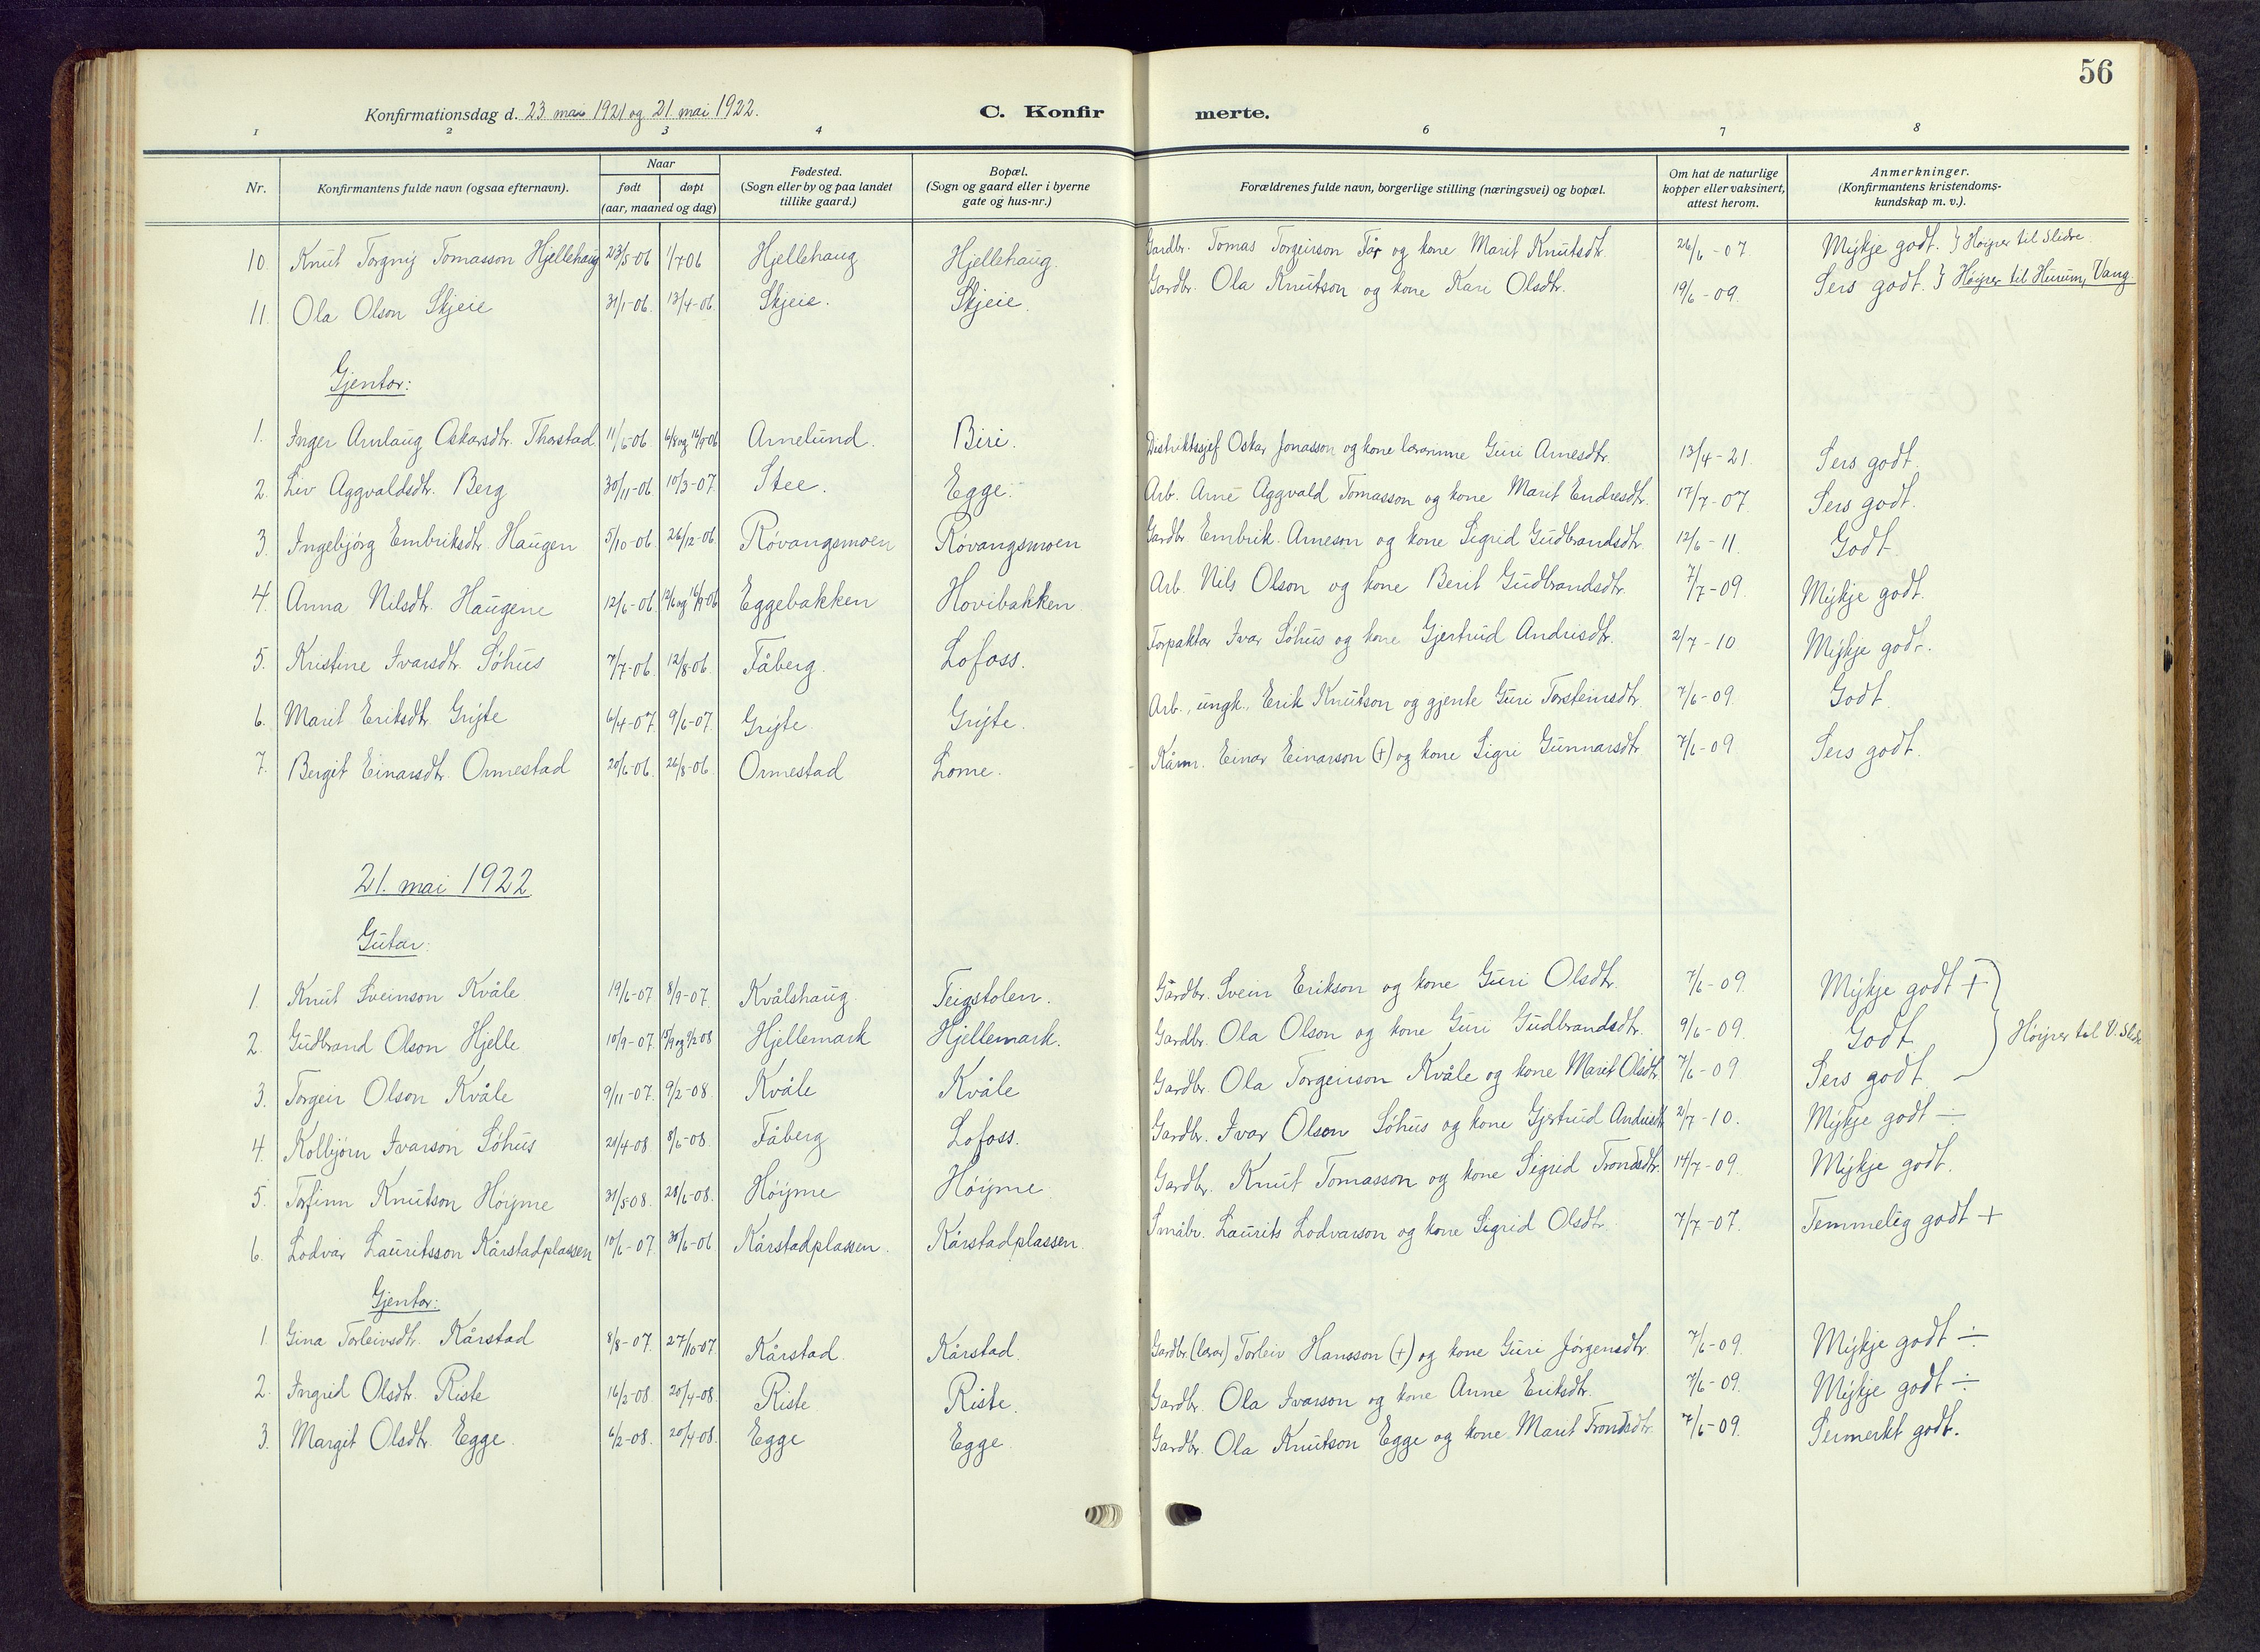 56
Konfirmationsdag d. 23 mai 1921 og 21 mai 1922.
C. Konfirmerte.
1 2 3 4 6 7 8
Nr. | Konfirmantens fulde navn (ogsaa efternavn). | Naar født døpt (aar, maaned og dag) | Fødested. (Sogn eller by og paa landet tillike gaard.) | Bopæl. (Sogn og gaard eller i byerne gate og hus-nr.) | Forældrenes fulde navn, borgerlige stilling (næringsvei) og bopæl. | Om hat de naturlige kopper eller vaksinert, attest herom. | Anmerkninger. (Konfirmantens kristendomskundskap m. v.).
10 Knut Torgny Tomasson Hjellehaug 23/5-06 1/7-06 Hjellehaug Hjellehaug. Gardbr. Tomas Torgeirson Før og kone Marit Knutsdt. 26/6-07 Mykje godt. } Høyrer til Slidre
11. Ola Olson Skjeie 31/1-06. 13/4-06. Skjeie. Skjeie. Gardbr. Ola Knutson og kone Kari Olsdtr. 19/6-09. Sers godt. } Høyrer til Hurum, Vang
Gjentor:
1. Inger Arnlaug Oskarsdtr. Thorstad 11/6-06 6/8 og 16/9-06 Arnelund. Biri. Distriktssjef Oskar Jonasson og kone lærarinne Guri Arnesdtr. 13/4-21. Sers godt.
2. Liv Aggvaldsdtr. Berg 30/11-06 10/3-07. Stee. Egge. Arb. Arne Aggvald Tomasson og kone Marit Endresdtr. 17/7-07 Sers godt.
3. Ingebjørg Embriksdtr. Haugen 5/10-06. 26/12-06. Røvangsmoen Røvangsmoen Gardbr Embrik Arneson og kone Sigrid Gudbrandsdtr. 12/6-11. Godt
4. Anna Nilsdtr. Haugene 12/6-06. 12/6 og 16/9-06 Eggebakken Hovibakken Arb. Nils Olson og kone Berit Gudbrandsdtr. 7/7-09. Mykje godt.
5. Kristine Ivarsdtr. Søhus 7/7-06. 12/8-06. Fåberg. Lofoss. Forpaktar Ivar Søhus og kone Gjertrud Andrisdtr. 2/7-10 Mykje godt.
6. Marit Eriksdtr. Gryte 6/4-07 9/6-07. Gryte Gryte. Arb., ungk., Erik Knutson og gjente Guri Torsteinsdtr. 7/6-09. Godt
7. Bergit Einarsdtr. Ormestad 20/6-06. 26/8-06 Ormestad Lome. Kårm. Einar Einarson (+) og kone Sigri Gunnarsdtr 7/6-09. Sers godt.
21. mai 1922.
Gutar:
1. Knut Sveinson Kvåle 19/6-07 8/9-07. Kvålshaug Teigstolen. Gårdbr. Svein Erikson og kone Guri Olsdtr. 7/6-09. Mykje godt +
2. Gudbrand Olson Hjelle 10/9-07. 15/9 og 9/2 08 Hjellemark Hjellemark. Gardbr. Ola Olson og kone Guri Gudbrandsdtr. 9/6-09. Godt } Høyrer til V. Slidre
3. Torgeir Olson Kvåle 9/11-07. 9/2-08. Kvåle Kvåle Gardbr. Ola Torgeirson Kvåle og kone Marit Olsdtr 7/6-09 Sers godt
4. Kolbjørn Ivarson Søhus 20/4-08 8/6-08. Fåberg Lofoss. Gardbr. Ivar Olson Søhus og kone Gjertrud Andrisdt. 2/7-10. Mykje godt ÷
5. Torfinn Knutson Høyme 31/5-08. 28/6-08. Høyme Høyme Gardbr. Knut Tomasson og kone Sigrid Trondsdtr. 14/7-09. Mykje godt.
6. Lodvar Lauritsson Kårstadplassen 10/6-07. 30/6-06 Kårstadplassen. Kårstadplassen Småbr. Laurits Lodvarson og kone Sigrid Olsdtr. 7/7-07. Temmelig godt +
Gjentor:
1. Gina Torleivsdtr. Kårstad 8/8-07. 27/10-07. Kårstad. Kårstad. Gardbr. (lærar) Torleiv Hansson (+) og kone Guri Jørgensdtr. 7/6-09. Mykje godt ÷
2. Ingrid Olsdtr. Riste 16/2-08. 20/4-08. Riste Riste. Gardbr. Ola Ivarson og kone Anne Eriksdtr. 7/6-09. Mykje godt ÷
3. Margit Olsdtr. Egge. 6/2-08. 20/4-08. Egge Egge Gardbr. Ola Knutson Egge og kone Marit Trondsdtr. 7/6-09. Sermerkt godt.